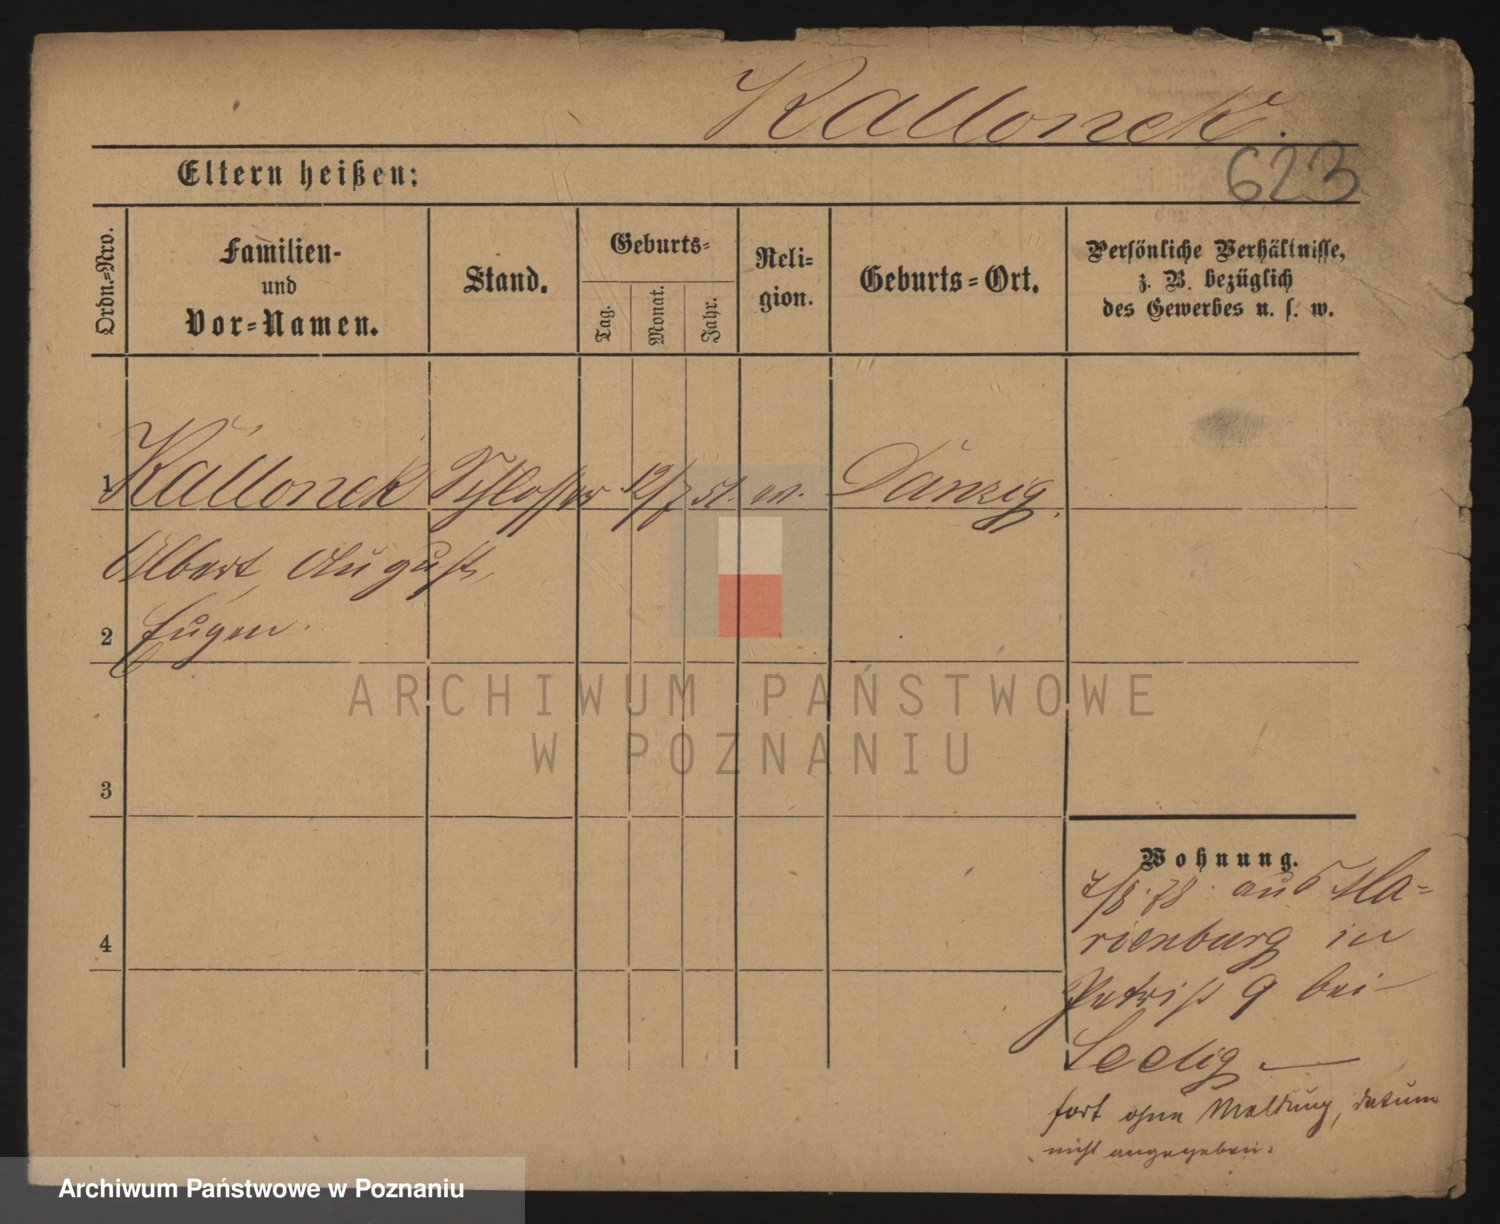 Kallonek.
623
Eltern heißen:
Ordn.=Nro.
Familien-
und
Vor=Namen.
Stand.
Geburts=
Tag.
Monat.
Jahr.
Reli=
gion.
Geburts=Ort.
Persönliche Verhältnisse,
z. B. bezüglich
des Gewerbes u. s. w.
1 Kallonek Schlosser 12/7 51. ev. Danzig.
Albert, August,
2 Eugen.
3
4
Wohnung.
7/8. 78. aus Ma=
rienburg in
9 bei
fort ohne Meldung, datum
nicht angegeben.
ARCHIWUM PAŃSTWOWE
W POZNANIU
Archiwum Państwowe w Poznaniu